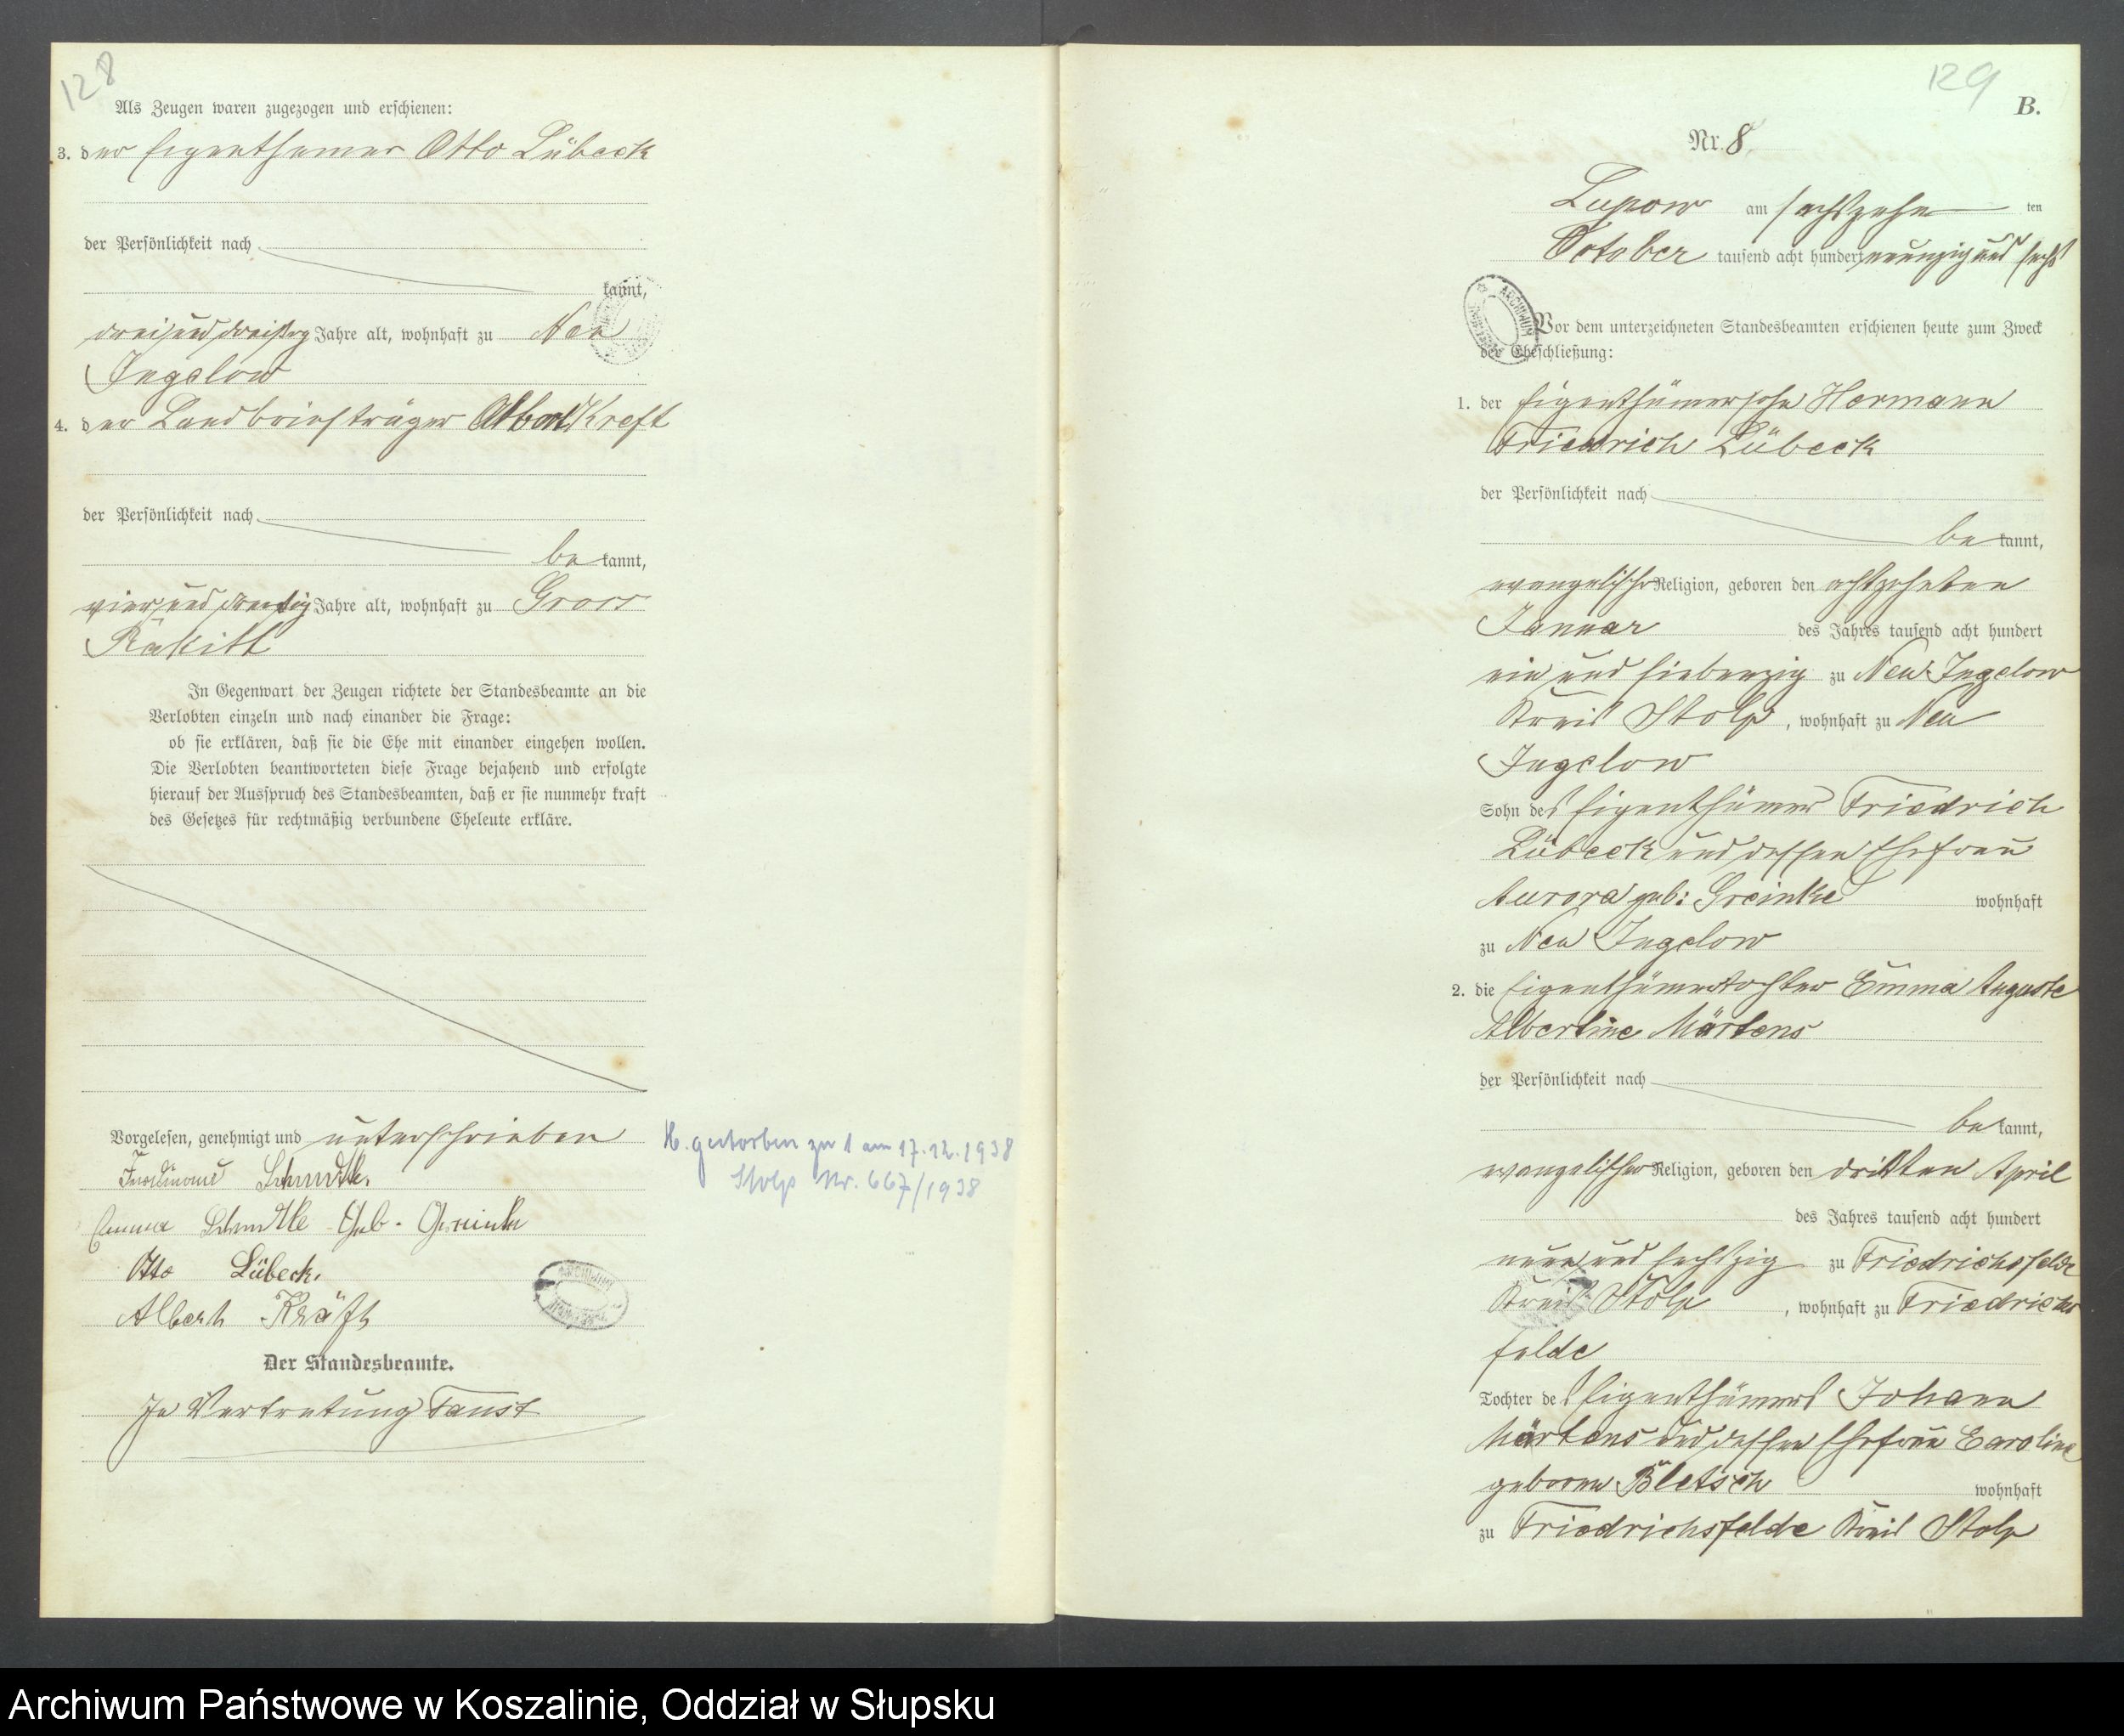 128
Als Zeugen waren zugezogen und erschienen:
3. der Eigenthümer Otto Lübeck
der Persönlichkeit nach
kannt,
dreiunddreißig Jahre alt, wohnhaft zu Neu
Jugelow
4. der Landbriefträger Albert Kreft
der Persönlichkeit nach
be kannt,
vierund Jahre alt, wohnhaft zu Gross
Rakitt
In Gegenwart der Zeugen richtete der Standesbeamte an die
Verlobten einzeln und nach einander die Frage:
ob sie erklären, daß sie die Ehe mit einander eingehen wollen.
Die Verlobten beantworteten diese Frage bejahend und erfolgte
hierauf der Ausspruch des Standesbeamten, daß er sie nunmehr kraft
des Gesetzes für rechtmäßig verbundene Eheleute erkläre.
Vorgelesen, genehmigt und unterschrieben
Ferdinand Schmidtke.
Emma Schmidtke Geb. Greinke
Otto Lübeck.
Albert Kräft
Der Standesbeamte.
In Vertretung Faust
H. gestorben zu 1 am 17.12.1938
Stolp Nr. 667/1938
129
B.
Nr. 8.
Lupow am sechszehn ten
October tausend acht hundert neunzig und sechs
Vor dem unterzeichneten Standesbeamten erschienen heute zum Zweck
der Eheschließung:
1. der Eigenthümersohn Hermann
Friedrich Lübeck
der Persönlichkeit nach
be kannt,
evangelischer Religion, geboren den achtzehnten
Januar des Jahres tausend acht hundert
ein und siebenzig zu Neu Jugelow
Kreis Stolp, wohnhaft zu Neu
Jugelow
Sohn des Eigenthümer Friedrich
Lübeck und dessen Ehefrau
Aurora geb: Greinke wohnhaft
zu Neu Jugelow
2. die Eigenthümertochter Emma Auguste
Albertine Märtens
der Persönlichkeit nach
be kannt,
evangelischer Religion, geboren den dritten April
des Jahres tausend acht hundert
neun und sechszig zu Friedrichsfelde
Kreis Stolp, wohnhaft zu Friedrichs
felde
Tochter des Eigenthümers Johann
Märtens und dessen Ehefrau Caroline
geboren Bletsch wohnhaft
zu Friedrichsfelde Kreis Stolp
Archiwum Państwowe w Koszalinie, Oddział w Słupsku